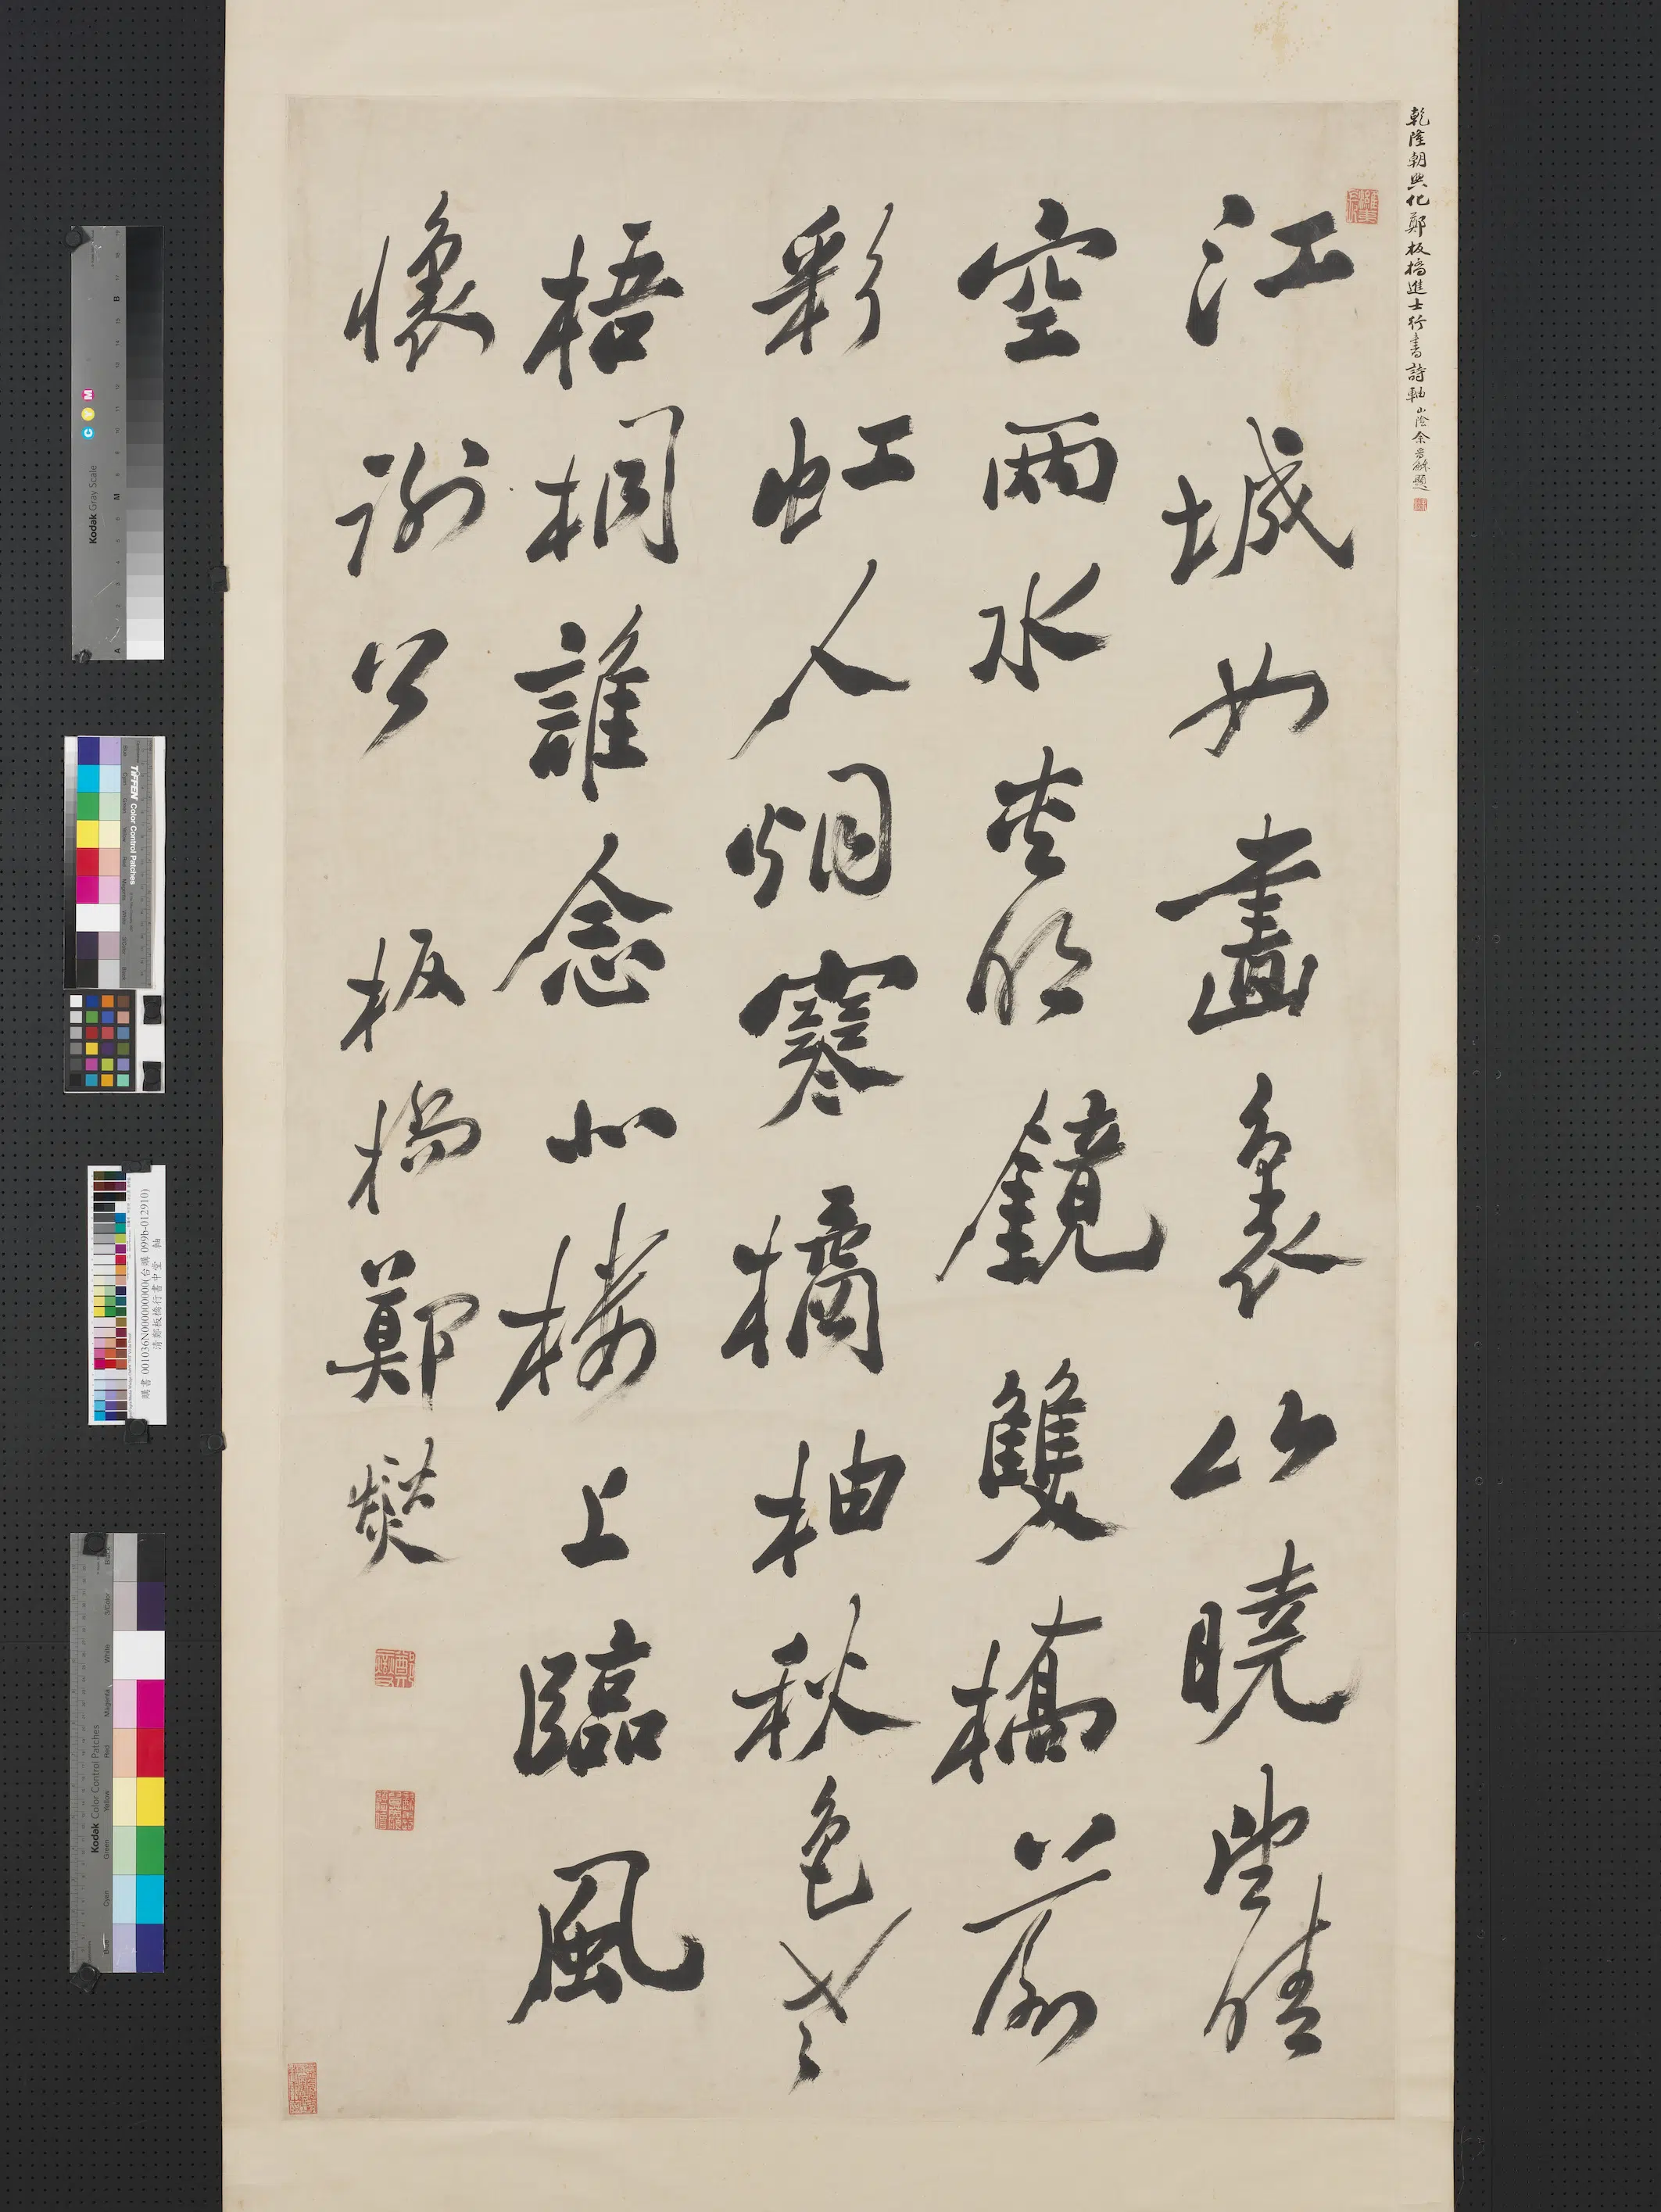 乾隆朝興化鄭板橋進士行書詩軸 山陰余晉龢題
江城如畫裏山曉望晴
空兩水夾明鏡雙橋前
彩虹人烟寒橘柚秋色老
梧桐誰念北樓上臨風
懷謝公 板橋鄭燮
Kodak Gray Scale
C Y M
TIFFEN Color Control Patches
購書 001036N000000000(台購 099b-012910)
清鄭板橋行書中堂 軸
Kodak Color Control Patches
Blue Cyan Green Yellow Red Magenta White 3/Color Black